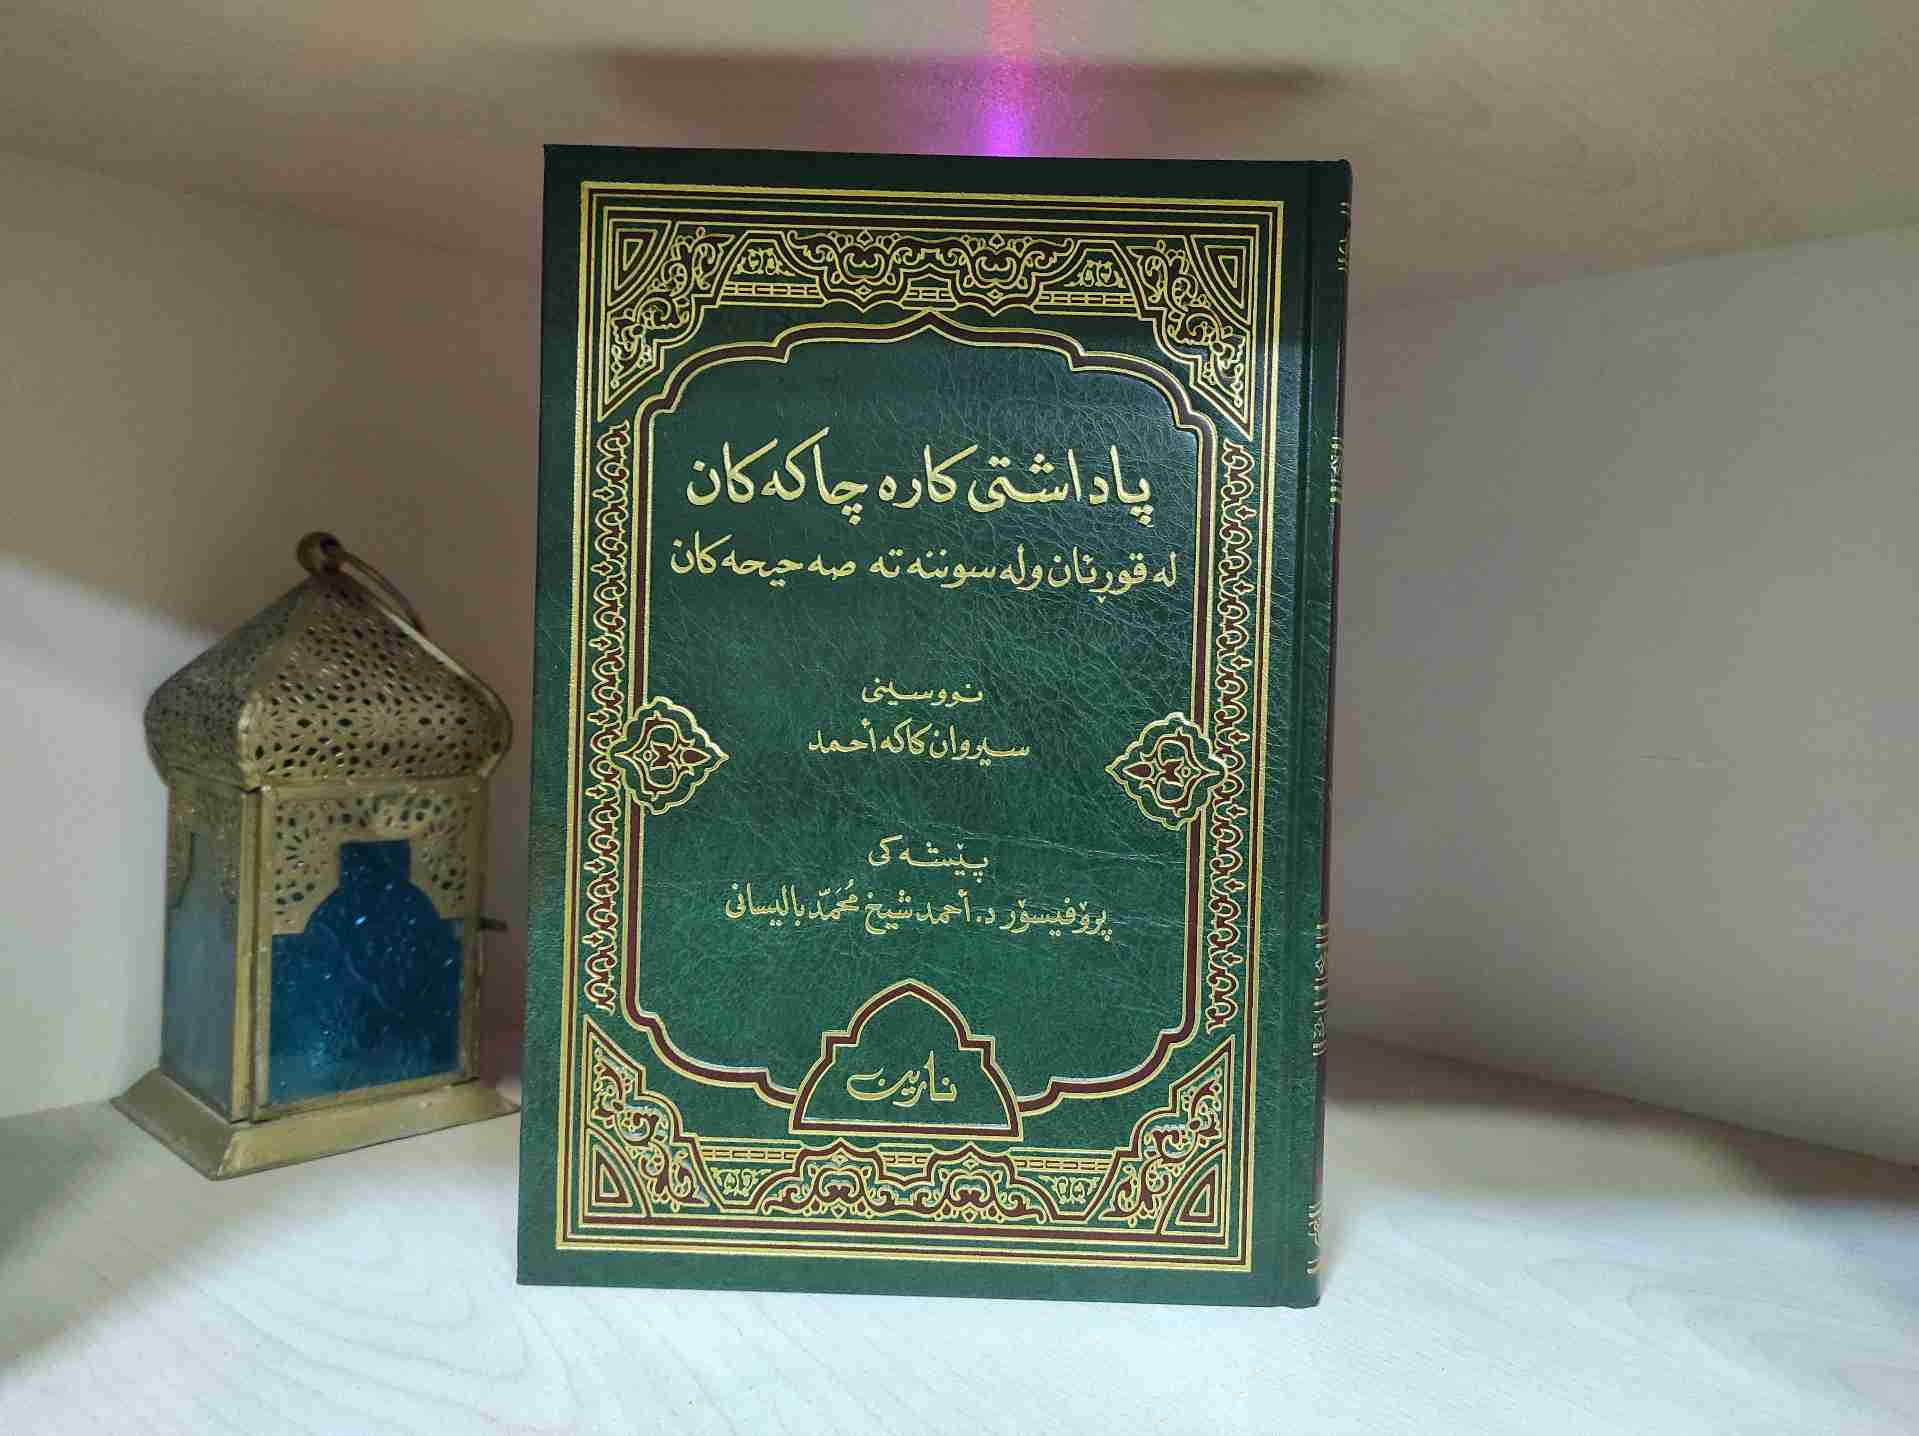 پاداشتی کاره چاکه‌کان
له قورئان و له سوننه‌ته صه‌حیحه‌کان
نووسینی
سیروان کاکه أحمد
پێشه‌کی
پرۆفیسۆر د. أحمد شێخ مُحَمَّد بالیسانی
نارین